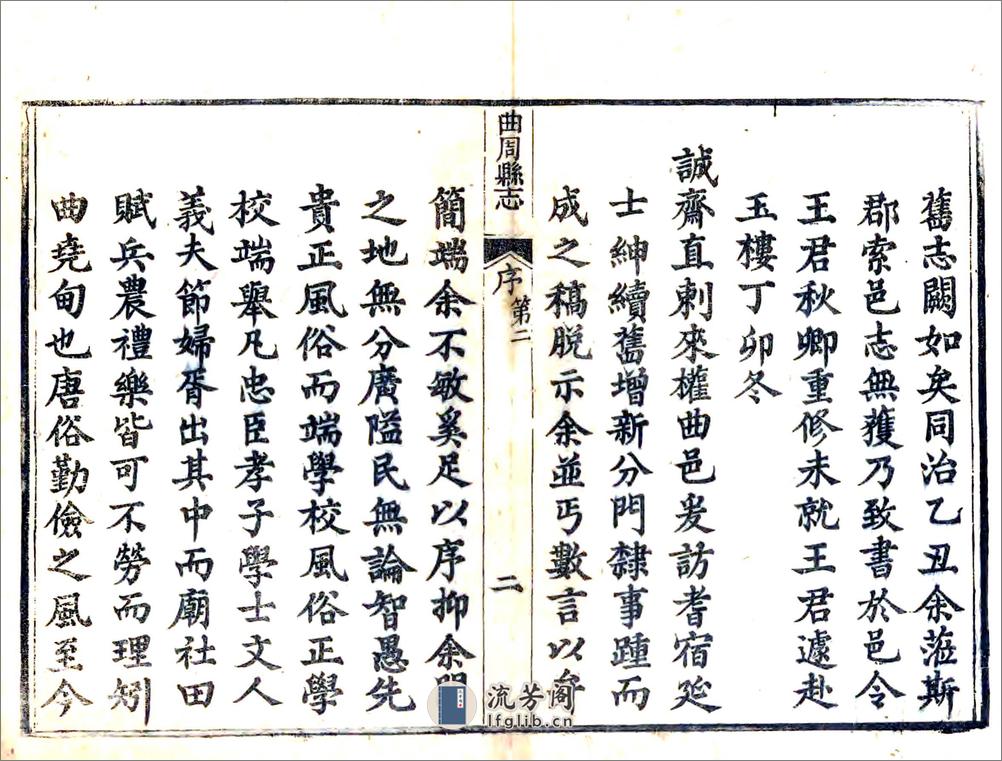 舊志闕如矣同治乙丑余蒞斯
郡索邑志無獲乃致書於邑令
王君秋卿重修未就王君遽赴
玉樓丁卯冬
誠齋直刺來權曲邑爰訪耆宿延
士紳續舊增新分門隸事踵而
成之稿脫示余並丐數言以弁
曲周縣志
序
第二
二
簡端余不敏奚足以序抑余聞
之地無分廣隘民無論智愚先
貴正風俗而端學校風俗正學
校端舉凡忠臣孝子學士文人
義夫節婦胥出其中而廟社田
賦兵農禮樂皆可不勞而理矧
曲堯甸也唐俗勤儉之風至今
流芳阁
lfglib.cn